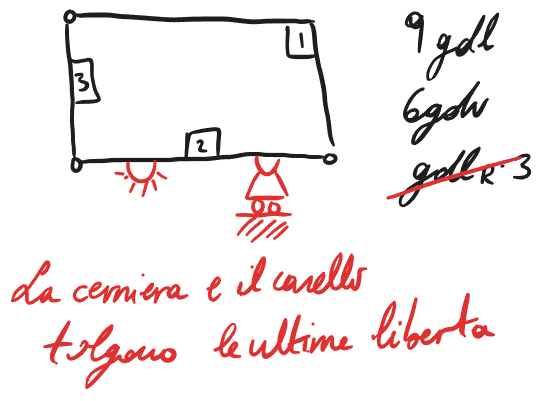 1
9 gdl
3
6 gdv
2
gdl R. 3
La cerniera e il carello
tolgono le ultime liberta